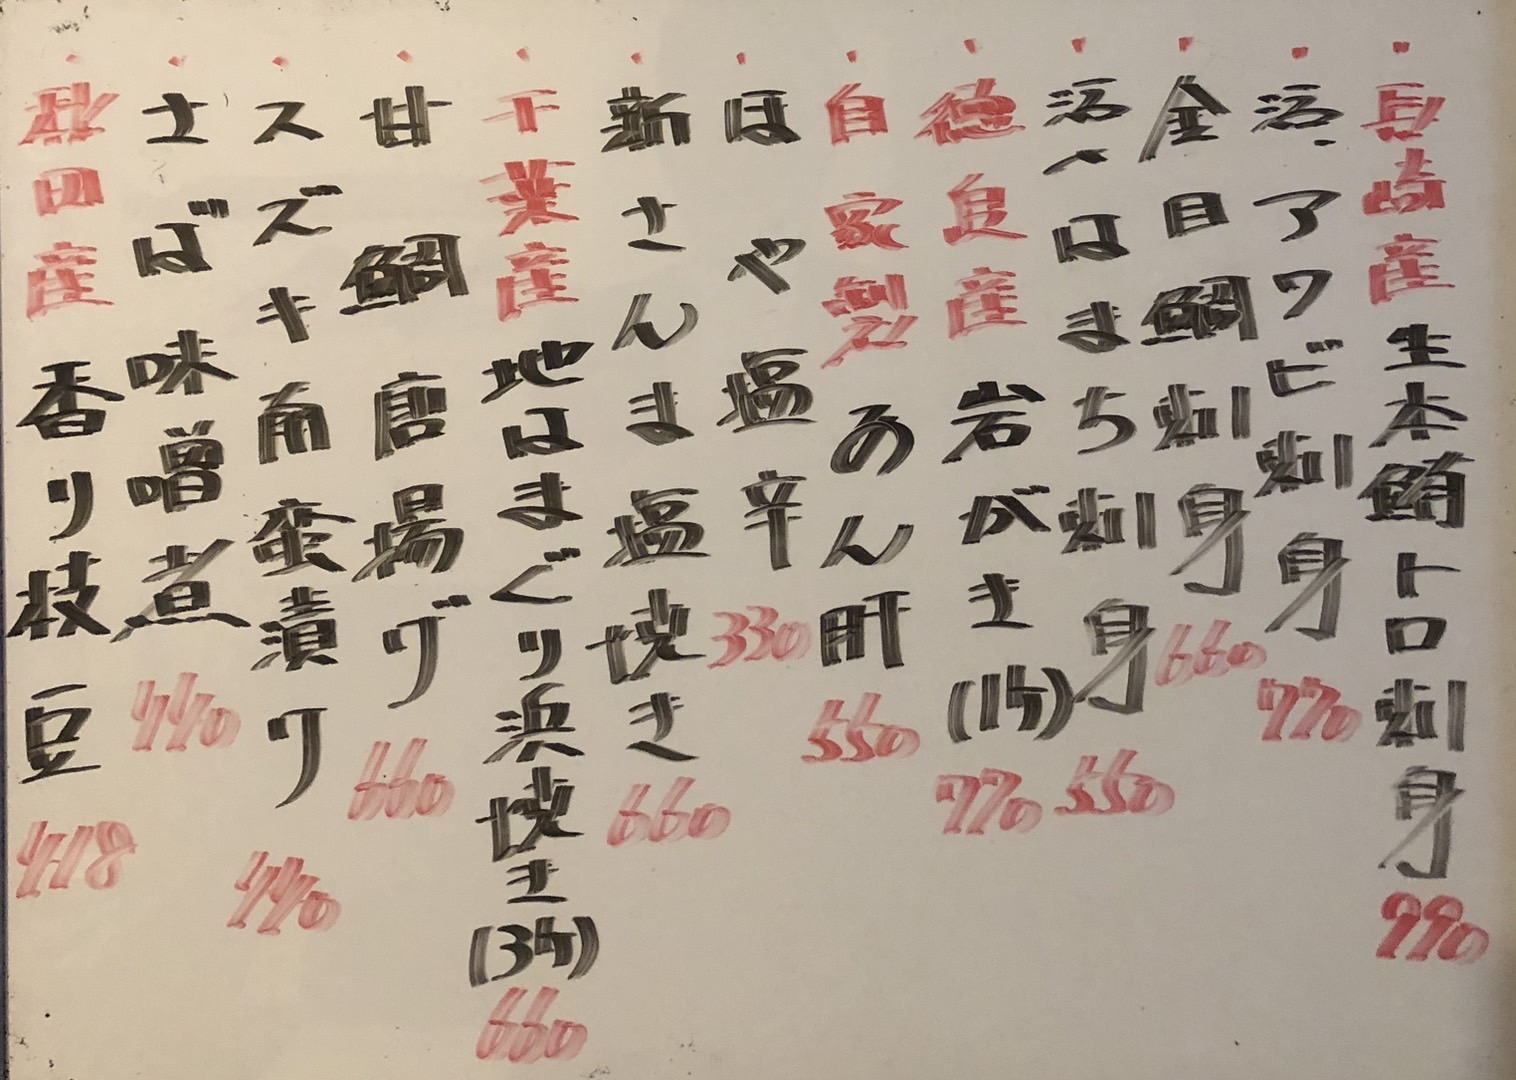 ・長崎産 生本鮪トロ刺身 990
・活、アワビ刺身 770
・金目鯛刺身 660
・活、はまち刺身 550
・徳島産 岩がき(1ケ) 770
・自家製 あん肝 550
・ほや塩辛 330
・新さんま塩焼き 660
・千葉産 地はまぐり浜焼き(3ケ) 660
・甘鯛唐揚げ 660
・スズキ南蛮漬け 440
・さば味噌煮 440
・秋田産 香り枝豆 418